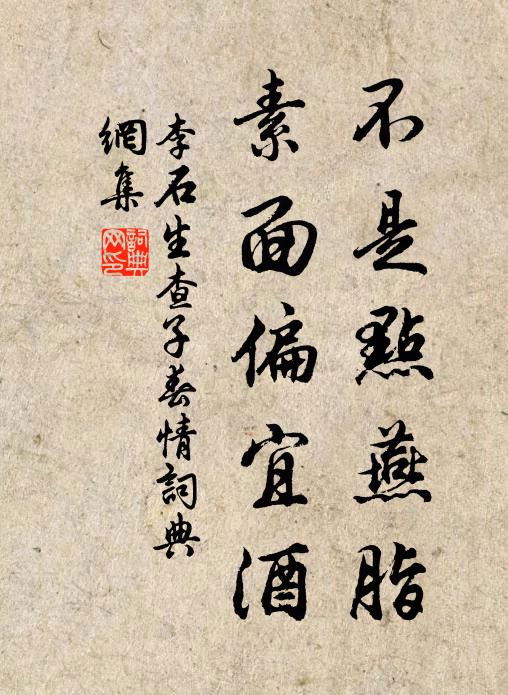 不是點燕脂
素面偏宜酒
李石生查子春情詞典
網集
詞典網印